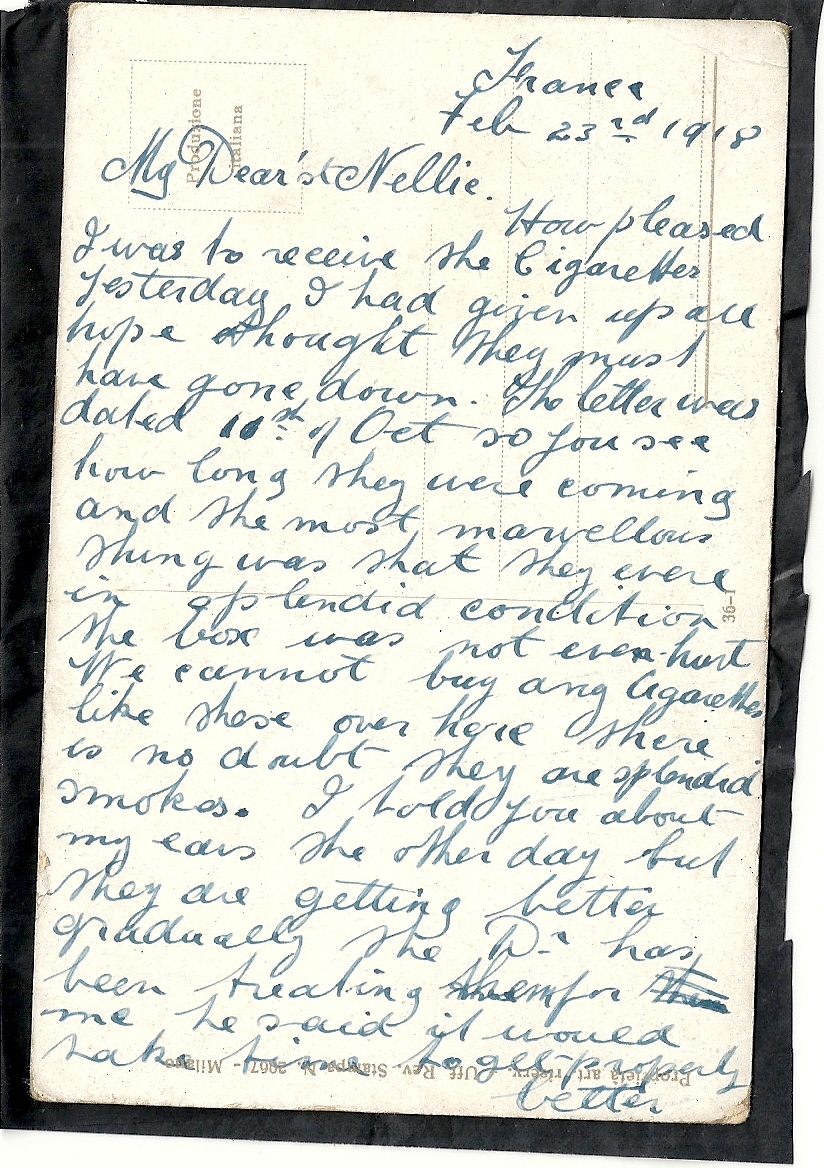 France
Feb 23rd 1918
Produzione
italiana
My Dear'st Nellie.
How pleased
I was to receive the Cigarettes
yesterday I had given up all
hope thought they must
have gone down. The letter was
dated 10st of Oct so you see
how long they were coming
and the most marvellous
thing was that they were
in splendid condition
36-1
the box was not even hurt
We cannot buy any Cigarettes
like these over here there
is no doubt they are splendid
smokes. I told you about
my ears the other day but
they are getting better
gradually the Dr has
been treating them for
me he said it would
take time to get properly
better
Proprietà art. riserv. Uff. Rev. Stampa N. 2067 - Milano